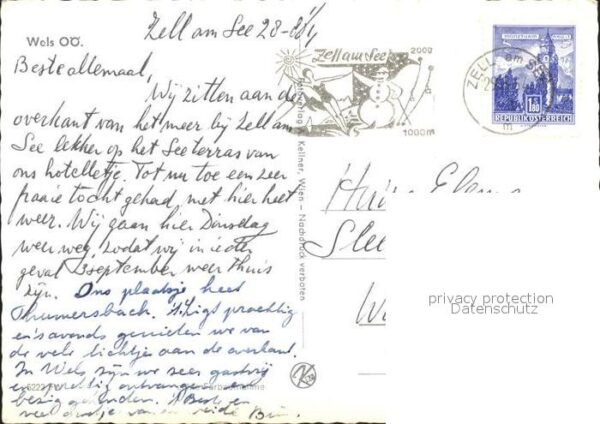 Zell am See 28-8
Wels OÖ.
Beste allemaal,
Wij zitten aan de
overkant van het meer bij Zell am
See lekker op het Seeterras van
ons hotelletje. Tot nu toe een zeer
fraaie tocht gehad, met hier heet
weer. Wij gaan hier Dinsdag
weer weg, zodat wij in ieder
geval 3 september weer thuis
zijn. Ons plaatsje heet
Thumersbach. Het ligt prachtig
en 's avonds genieten we van
de vele lichtjes aan de overkant.
In Wels zijn we zeer gastvrij
en ontvangen en
bezig gehouden. Beste en
veel van beide
Zell am See
2000
1000 m
ZELL am SEE
1.80
REPUBLIK ÖSTERREICH
Kellner, Wien – Nachdruck verboten
privacy protection
Datenschutz